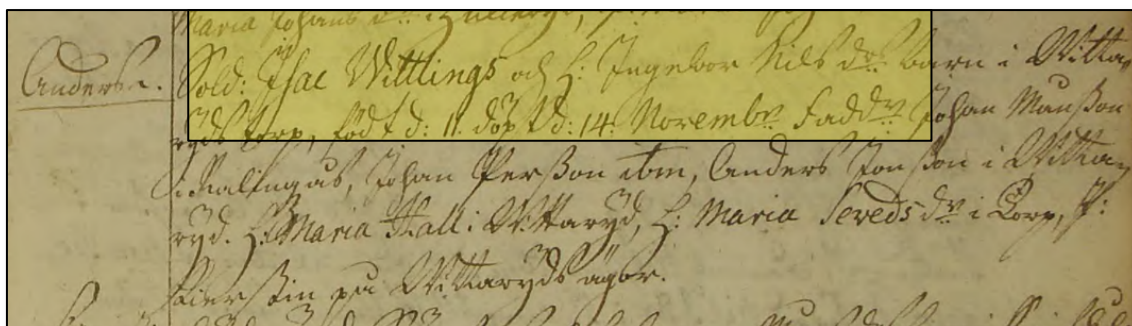 Maria Johans dr i
Anders.
Sold: Isac Wittlings och h: Ingebor Nils drs barn i Witta-
ryds torp, född d: 11. döpt d: 14. Novembr Faddr Johan Manßon
i Ralingås, Johan Perßon ibm, Anders Jonßon i Witta-
ryd. h: Maria Hall i Wittaryd, h: Maria Sereds dr i Torp, P:
på Wittaryds ägor.